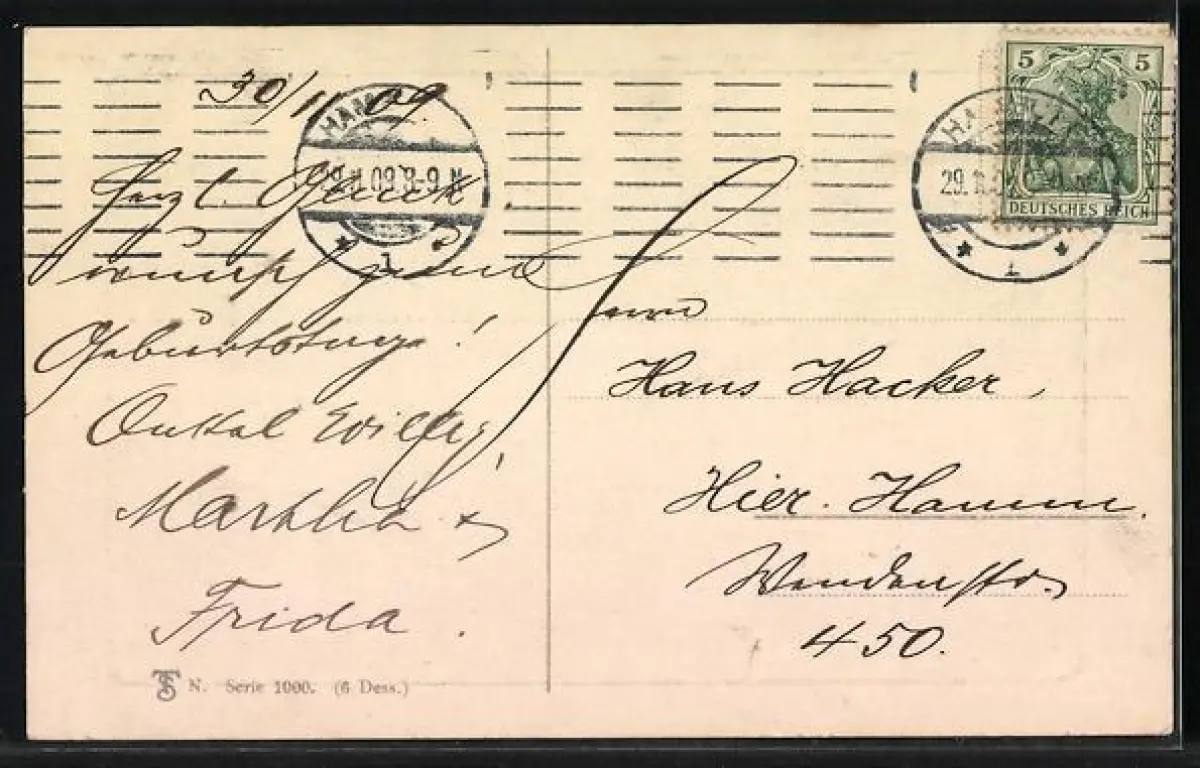 30/11 09.
Herzl. Glück
wunsch zum
Geburtstage!
Onkel Willy,
&
Frida.
TSN. Serie 1000. (6 Dess.)
HAMBURG
29.11.09.8-9N
1
HAMBURG
29.11.
1
5 5
DEUTSCHES REICH
Herrn
Hans Hacker,
Hier-Hamm.
Wendenstr.
450.